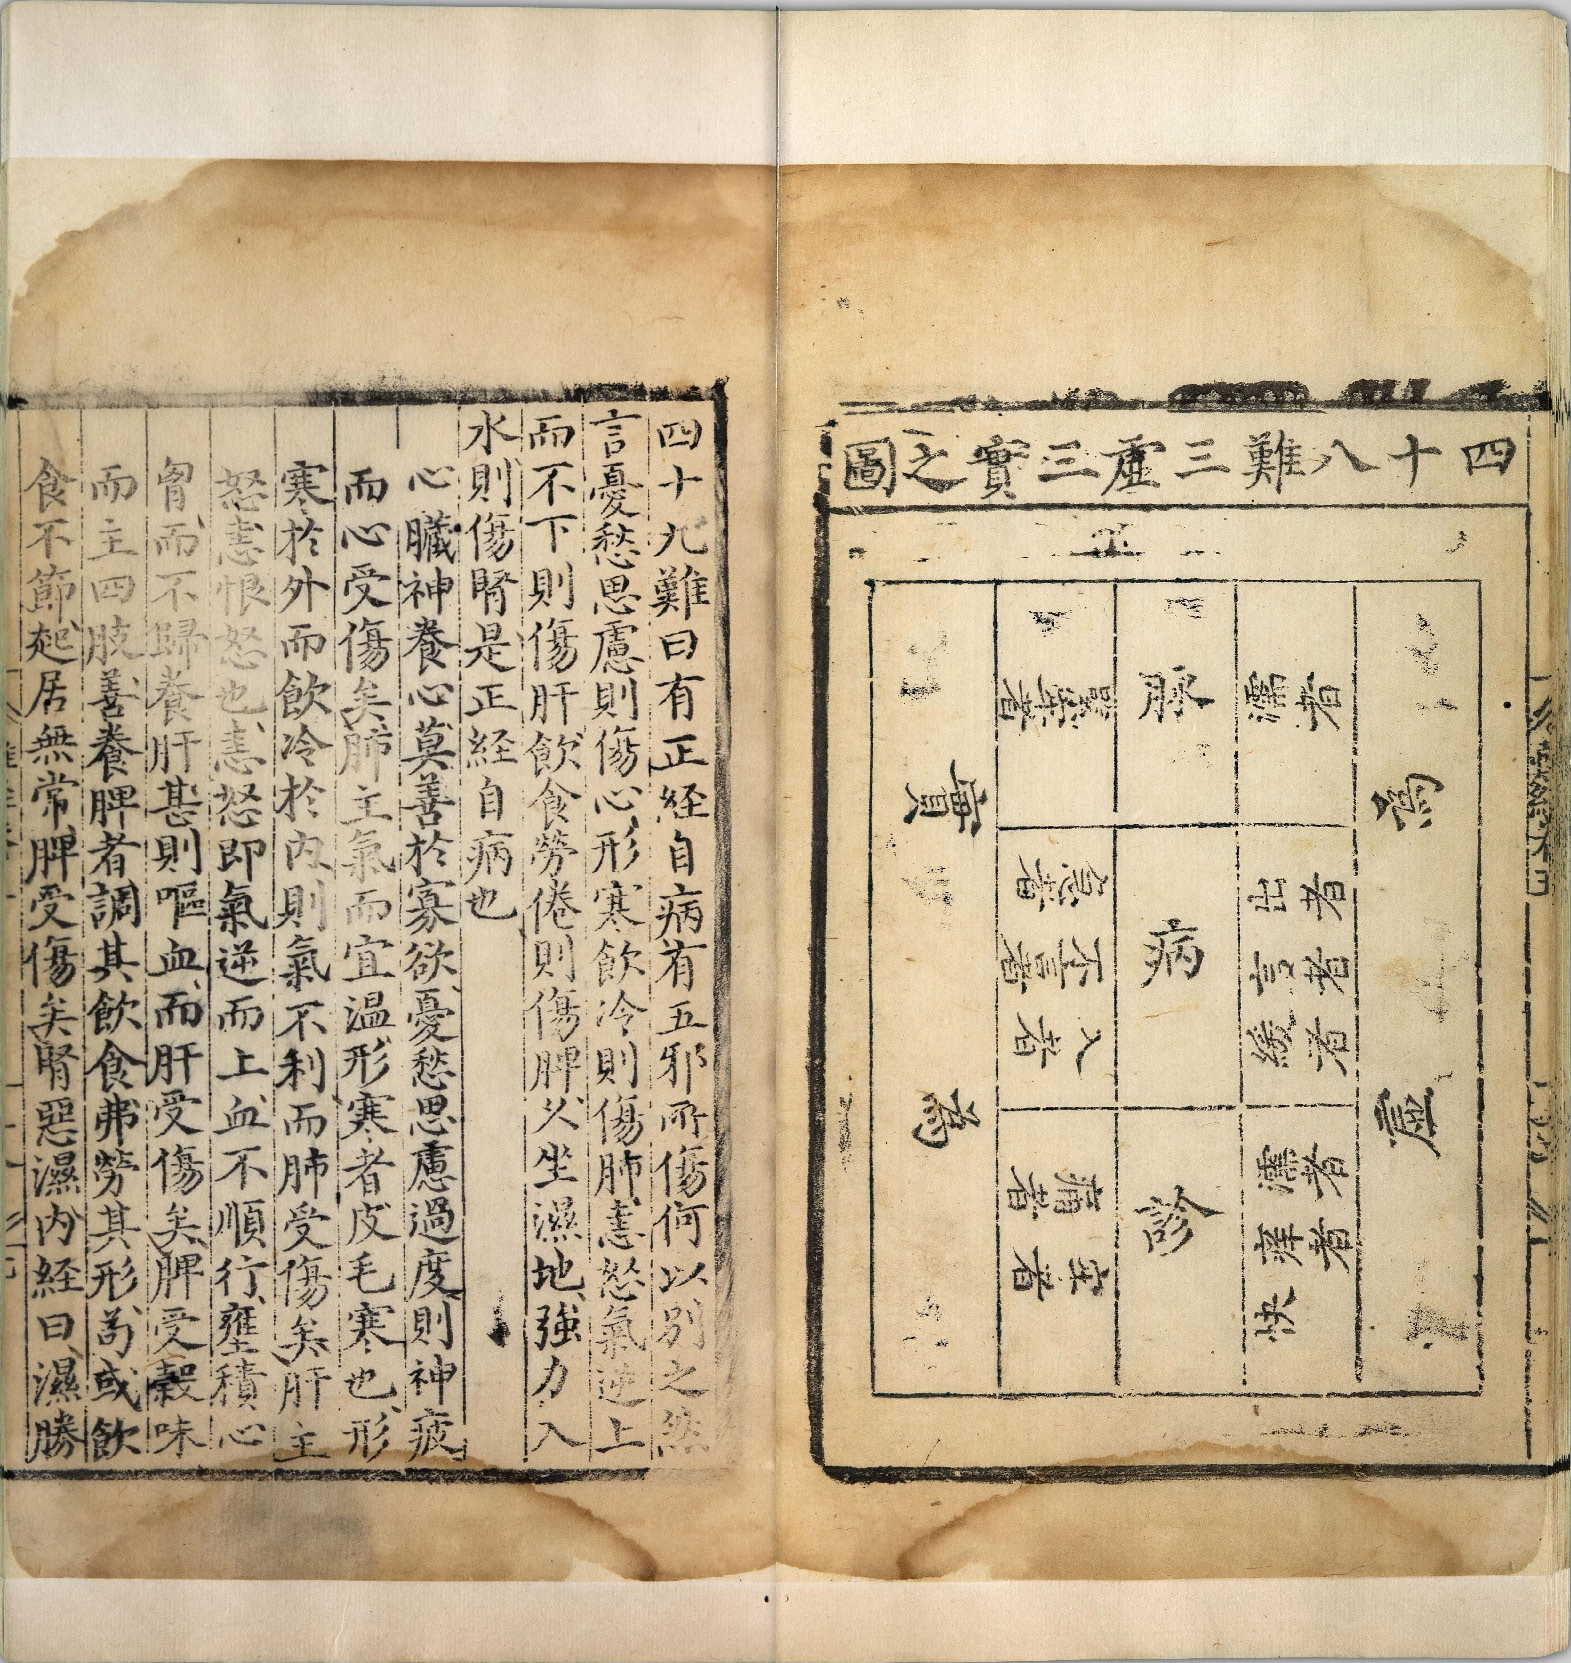 四十八難三虛三實之圖
為虛
濡者
出者
言者
緩者
濡者
痒者
快
脉
病
診
緊牢者
急者
不言者
入者
痛者
為實
四十九難曰有正経自病有五邪所傷何以別之然
言憂愁思慮則傷心形寒飲冷則傷肺恚怒氣逆上
而不下則傷肝飲食勞倦則傷脾乆坐濕地強力入
水則傷腎是正経自病也
心臟神養心莫善於寡欲憂愁思慮過度則神疲
而心受傷矣肺主氣而宜温形寒者皮毛寒也形
寒於外而飲冷於内則氣不利而肺受傷矣肝主
怒恚恨怒也恚怒即氣逆而上血不順行壅積心
胷而不歸養肝甚則嘔血而肝受傷矣脾受穀味
而主四肢善養脾者調其飲食弗勞其形苟或飲
食不節起居無常脾受傷矣腎惡濕内経曰濕勝